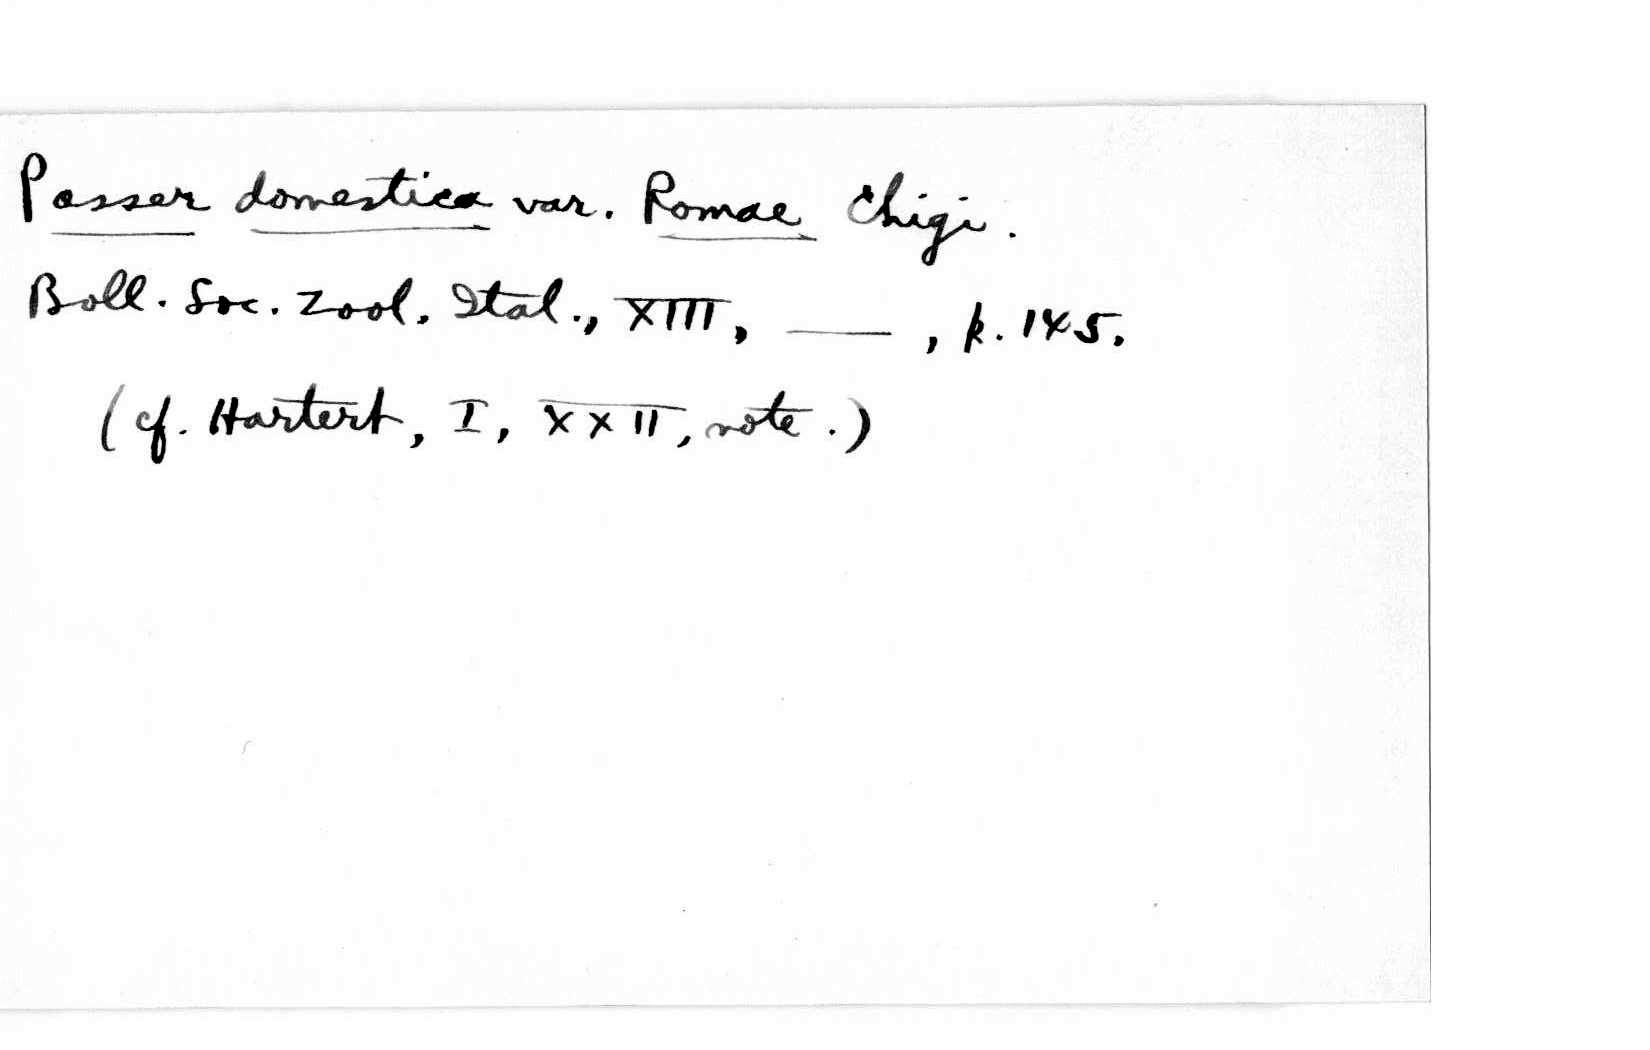 Passer domestica var. Romae Chigi.
Boll. Soc. Zool. Ital., XIII, ___, p. 145.
(cf. Hartert, I, XXII, note.)